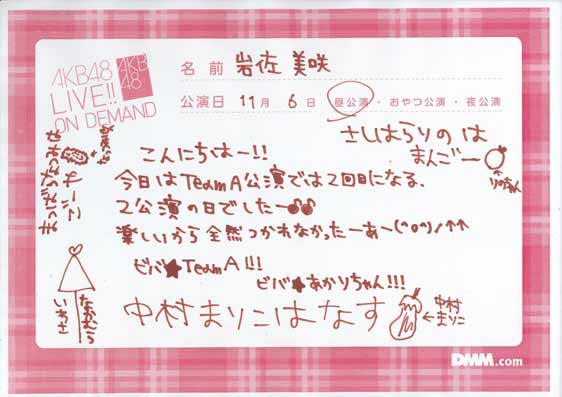 AKB48
LIVE!!
ON DEMAND
AKB
48
名前 岩佐美咲
公演日 11月6日・昼公演・おやつ公演・夜公演
さしはらりのは
まんごー
りのちゃん
こんにちはー!!
今日はTeamA公演では2回目になる、
2公演の日でしたー♪♪
楽しいから全然つかれなかったーあー(^o^)/↑↑
ビバ★TeamA!!!
ビバ★あかりちゃん!!!
中村まりこはなす
←中村
まりこ
なかむら
いちご
DMM.com